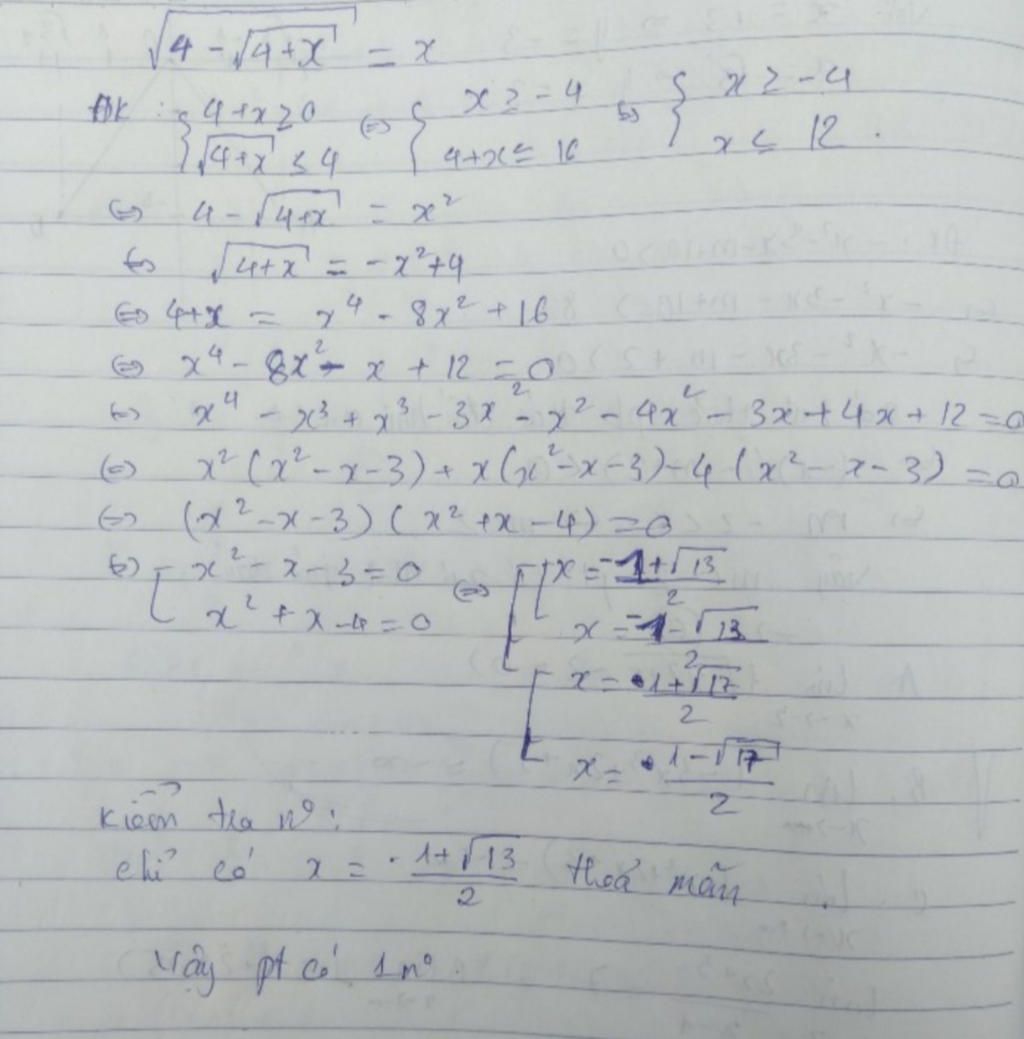 √(4 - √(4+x)) = x
ĐK: { 4+x ≥ 0 ; √(4+x) ≤ 4 ⇔ { x ≥ -4 ; 4+x ≤ 16 ⇔ { x ≥ -4 ; x ≤ 12.
⇔ 4 - √(4+x) = x²
⇔ √(4+x) = -x²+4
⇔ 4+x = x⁴ - 8x² + 16
⇔ x⁴ - 8x² - x + 12 = 0
⇔ x⁴ - x³ + x³ - 3x² - x² - 4x² - 3x + 4x + 12 = 0
⇔ x² (x² - x - 3) + x (x² - x - 3) - 4 (x² - x - 3) = 0
⇔ (x² - x - 3) (x² + x - 4) = 0
⇔ [ x² - x - 3 = 0 ; x² + x - 4 = 0 ⇔ [ [ x = (-1+√13)/2
x = (-1-√13)/2
[ x = (1+√17)/2
x = (1-√17)/2
Kiểm tra n°:
chỉ có x = (-1+√13)/2 thoả mãn.
Vậy pt có 1 n°.